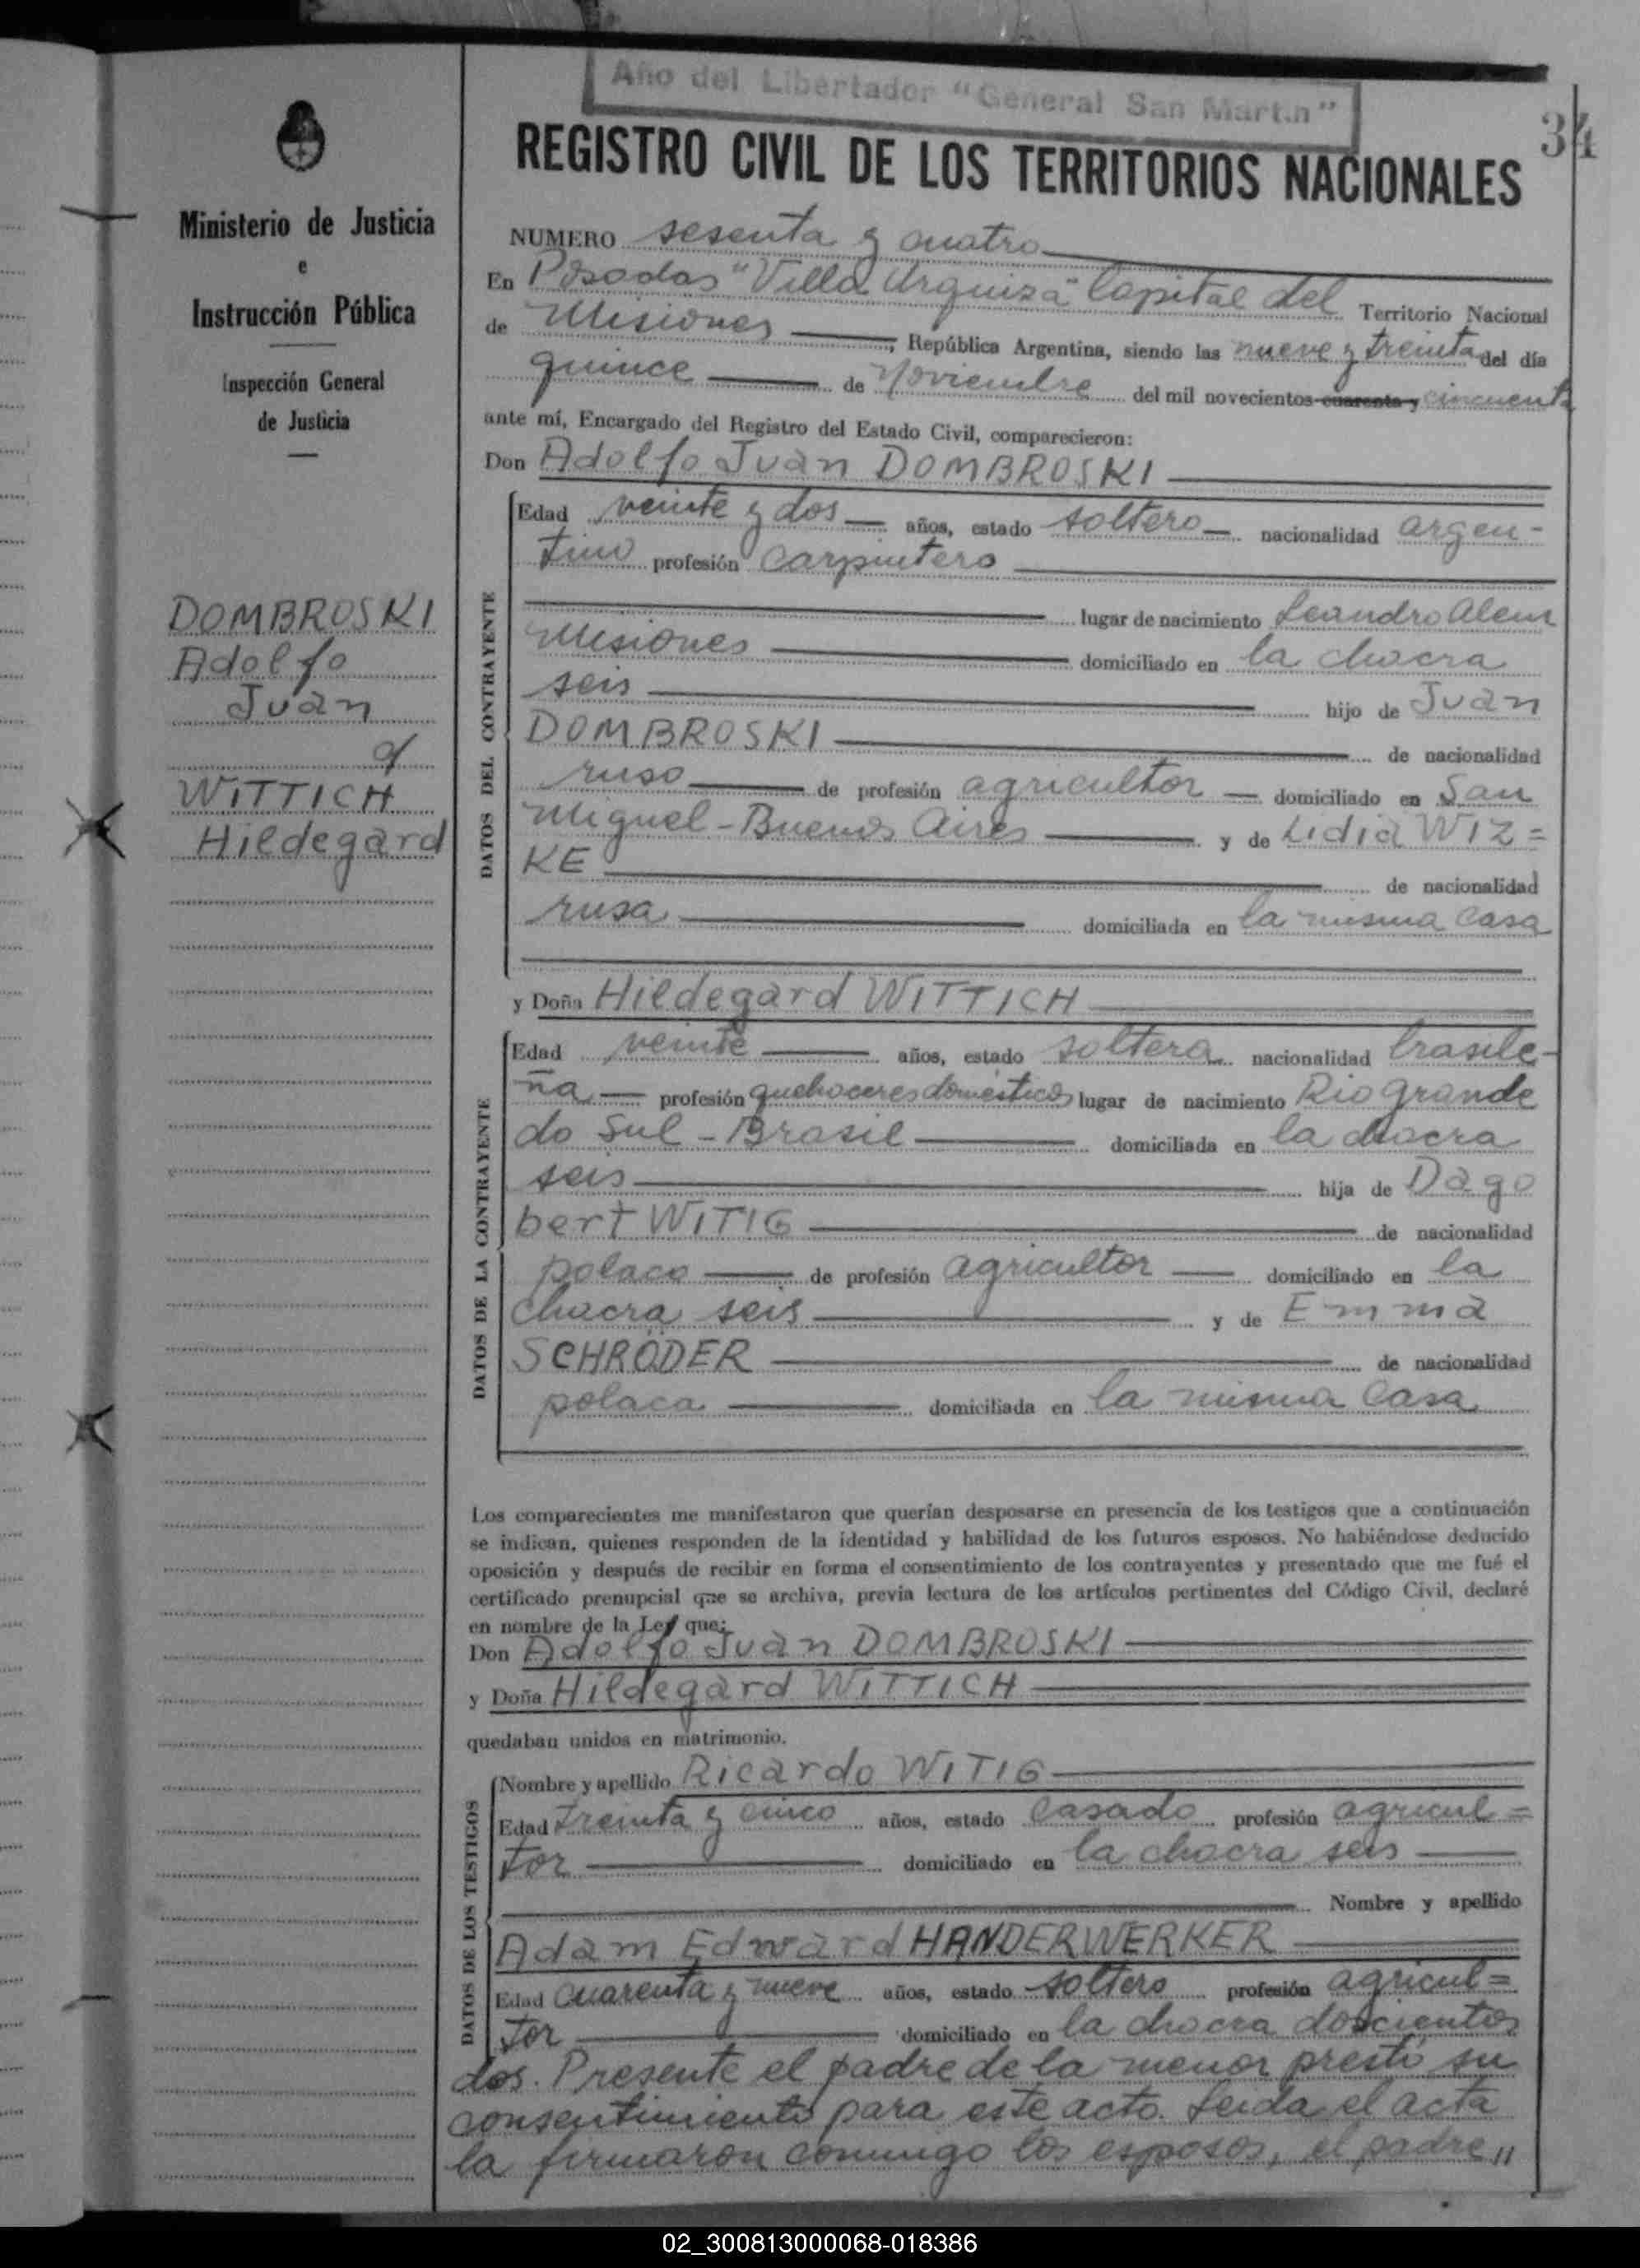 Año del Libertador "General San Mart.n"
34
REGISTRO CIVIL DE LOS TERRITORIOS NACIONALES
Ministerio de Justicia
e
Instrucción Pública
Inspección General
de Justicia
DOMBROSKI
Adolfo
Juan
WITTICH
Hildegard
NUMERO sesenta y cuatro
En Posadas "Villa Urquiza" Capital del Territorio Nacional
de Misiones, República Argentina, siendo las nueve y treinta del día
quince de Noviembre del mil novecientos cuarenta y cincuenta
ante mí, Encargado del Registro del Estado Civil, comparecieron:
Don Adolfo Juan DOMBROSKI
DATOS DEL CONTRAYENTE
Edad veinte y dos años, estado soltero nacionalidad argen-
tino profesión carpintero
lugar de nacimiento Leandro Alem
Misiones domiciliado en la chacra
seis hijo de Juan
DOMBROSKI de nacionalidad
ruso de profesión agricultor domiciliado en San
Miguel - Buenos Aires y de Lidia WIZ=
KE de nacionalidad
rusa domiciliada en la misma casa
y Doña Hildegard WITTICH
DATOS DE LA CONTRAYENTE
Edad veinte años, estado soltera nacionalidad brasile-
ña profesión quehaceres domésticos lugar de nacimiento Rio Grande
do Sul - Brasil domiciliada en la chacra
seis hija de Dago
bert WITIG de nacionalidad
polaco de profesión agricultor domiciliado en la
chacra seis y de Emma
SCHRÖDER de nacionalidad
polaca domiciliada en la misma casa
Los comparecientes me manifestaron que querían desposarse en presencia de los testigos que a continuación
se indican, quienes responden de la identidad y habilidad de los futuros esposos. No habiéndose deducido
oposición y después de recibir en forma el consentimiento de los contrayentes y presentado que me fué el
certificado prenupcial que se archiva, previa lectura de los artículos pertinentes del Código Civil, declaré
en nombre de la Ley que:
Don Adolfo Juan DOMBROSKI
y Doña Hildegard WITTICH
quedaban unidos en matrimonio.
DATOS DE LOS TESTIGOS
Nombre y apellido Ricardo WITIG
Edad treinta y cinco años, estado casado profesión agricul=
tor domiciliado en la chacra seis
Nombre y apellido
Adam Edward HANDERWERKER
Edad cuarenta y nueve años, estado soltero profesión agricul=
tor domiciliado en la chacra doscientos
dos. Presente el padre de la menor prestó su
consentimiento para este acto. Leida el acta
la firmaron conmigo los esposos, el padre "
02_300813000068-018386